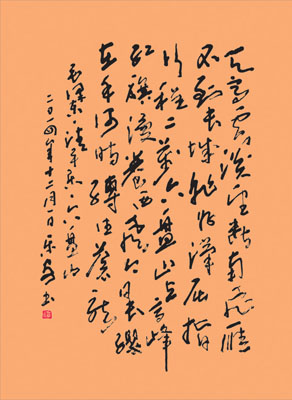 天高云淡望断南飛雁
不到长城非好漢屈指
行程二萬六盘山上高峰
红旗漫卷西风今日长缨
在手何时缚住苍龙
毛泽东清平乐六盘山
二〇一四年十二月一日 书